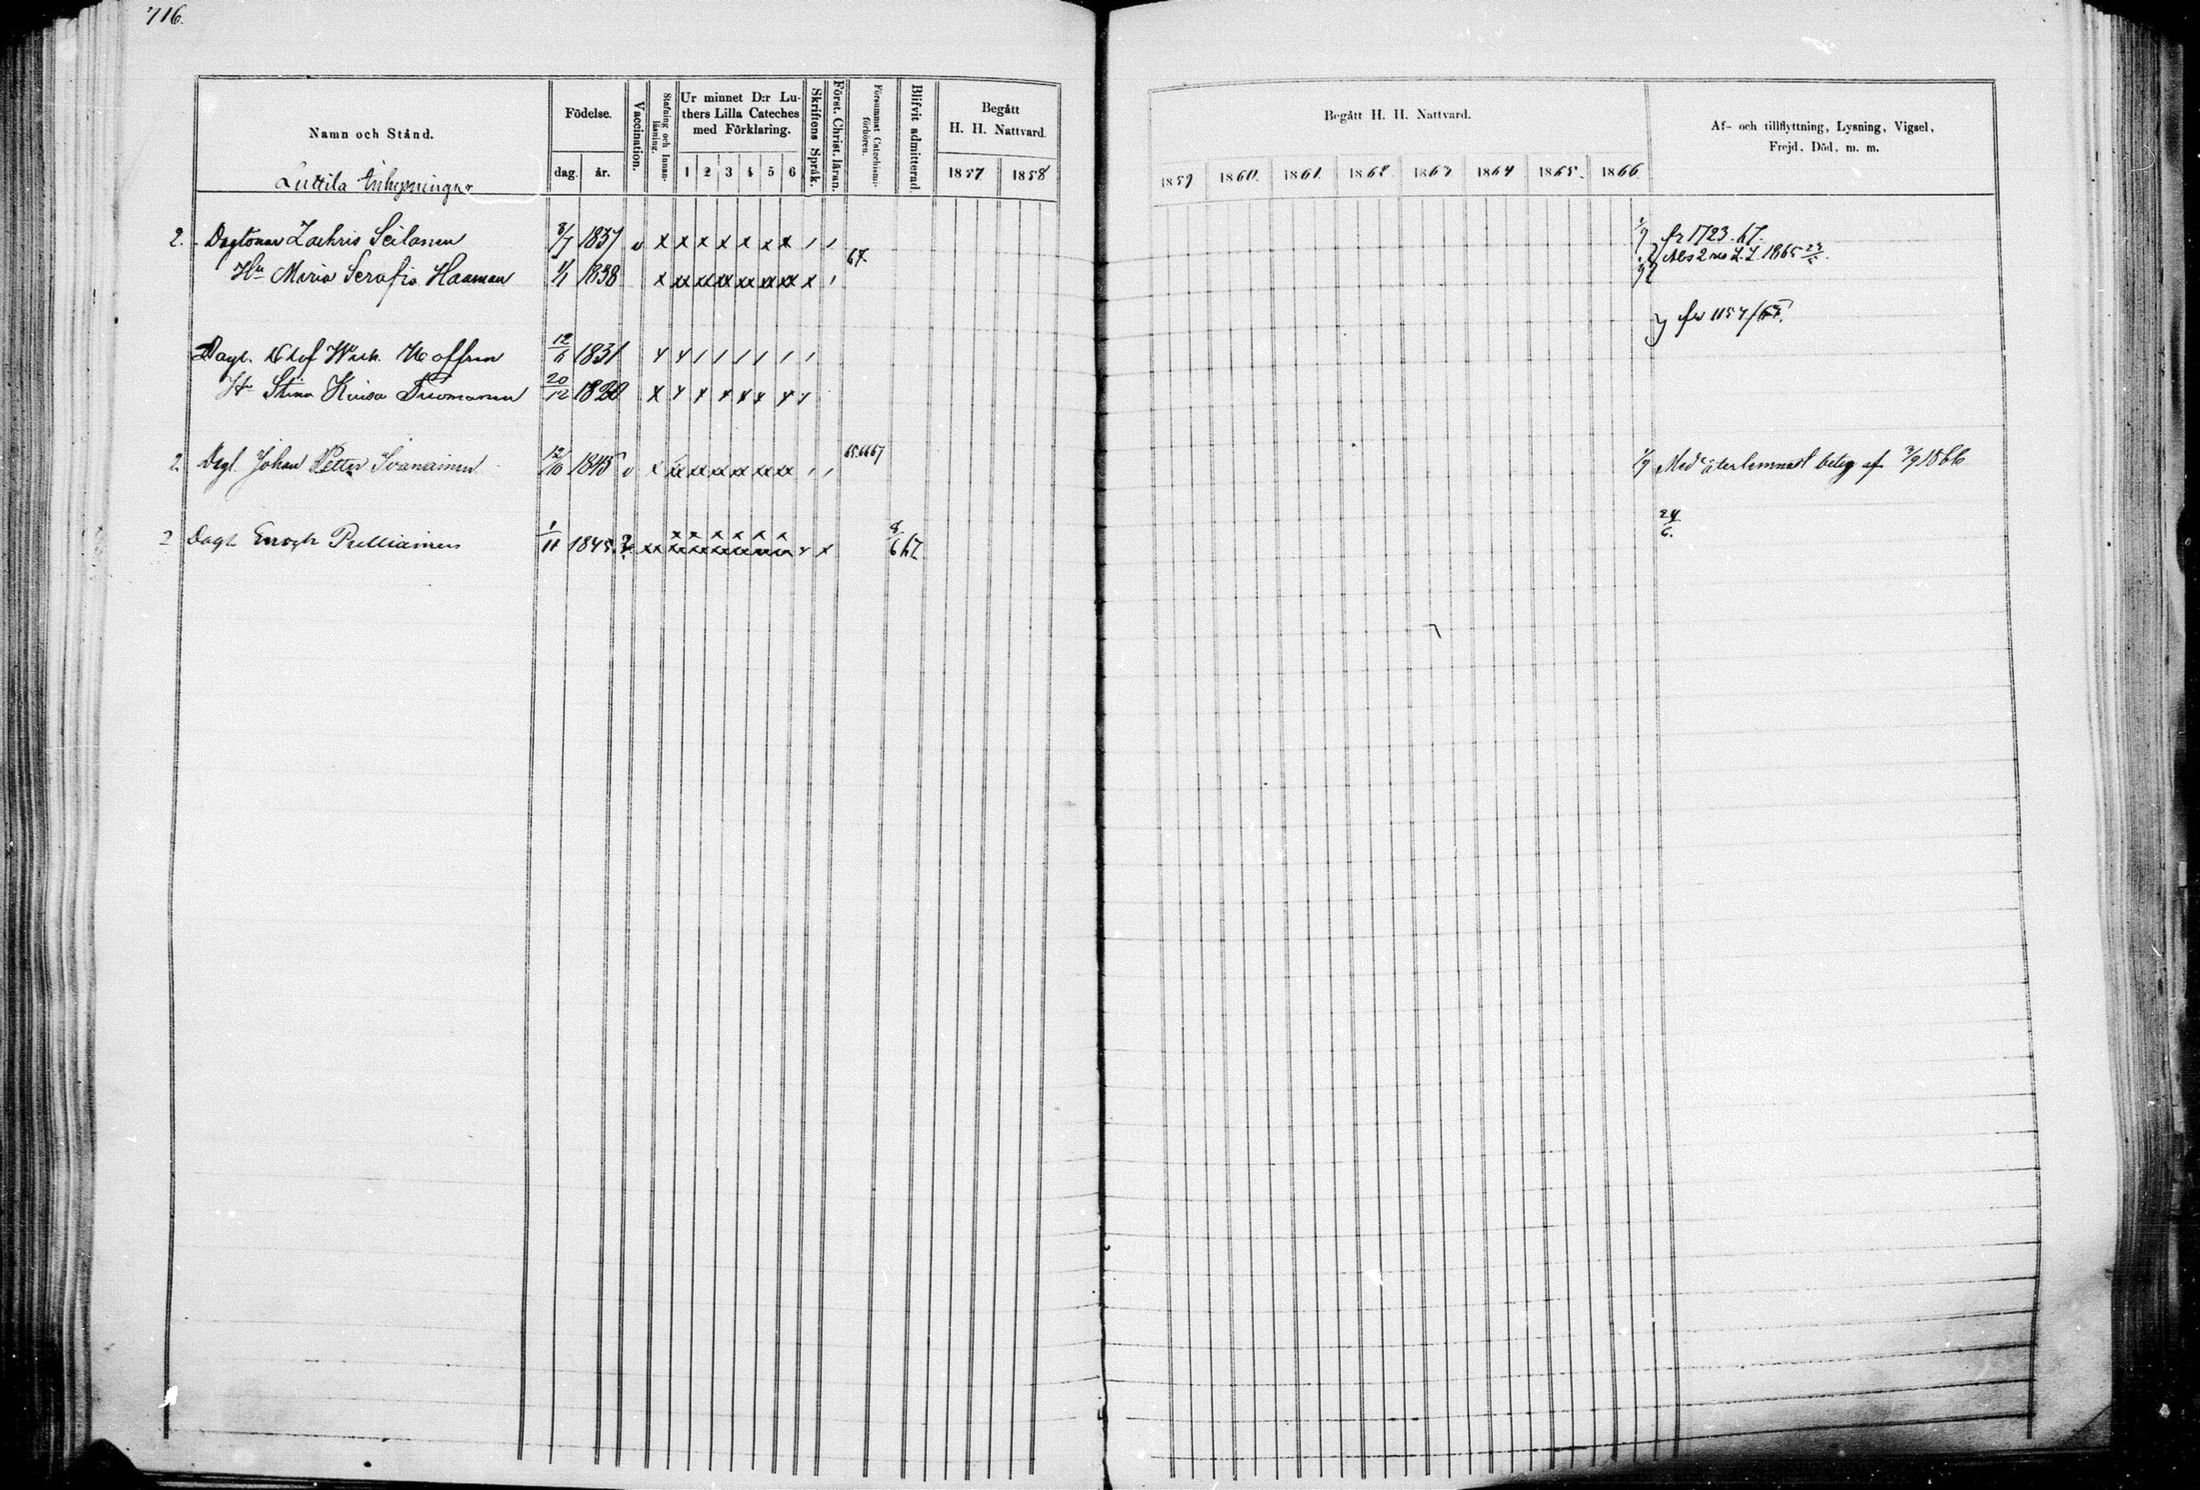 716.
Namn och Stånd.
Födelse.
dag. år.
Vaccination.
Stafning och Innanläsning.
Ur minnet D:r Luthers Lilla Cateches med Förklaring.
1 2 3 4 5 6
Skriftens Språk.
Först. Christ. läran.
Försummat Catechismiförhören.
Blifvit admitterad.
Begått H. H. Nattvard.
1857 1858
Begått H. H. Nattvard.
1859 1860. 1861. 1862 1863 1864 1865. 1866
Af- och tillflyttning, Lysning, Vigsel, Frejd, Död, m. m.
Luttila Inhysningar
2. Daglönar Zachris Seilonen 8/7 1837 v x x x x x x x / / fr 1723. 67.
67. Abs 2 L. Z. 1865
Hu Maria Serafia Haaman 1/1 1838 x xx xx xx xx xx xx x /
y fr 1157/65.
Dagl. Olof Wilh. Hoffren 12/6 1831
Hu Stina Kaisa Tuomanen 20/12 1820
2. Dagl. Johan Petter Ivanainen 12/10 1845 v x xx xx xx xx xx xx / / 65.66 67 1/9 Med återlemnadt betyg af 3/9 1866
2 Dagl. Enoch Pulliainen 1/11 1845. 8/6 67 24/6.